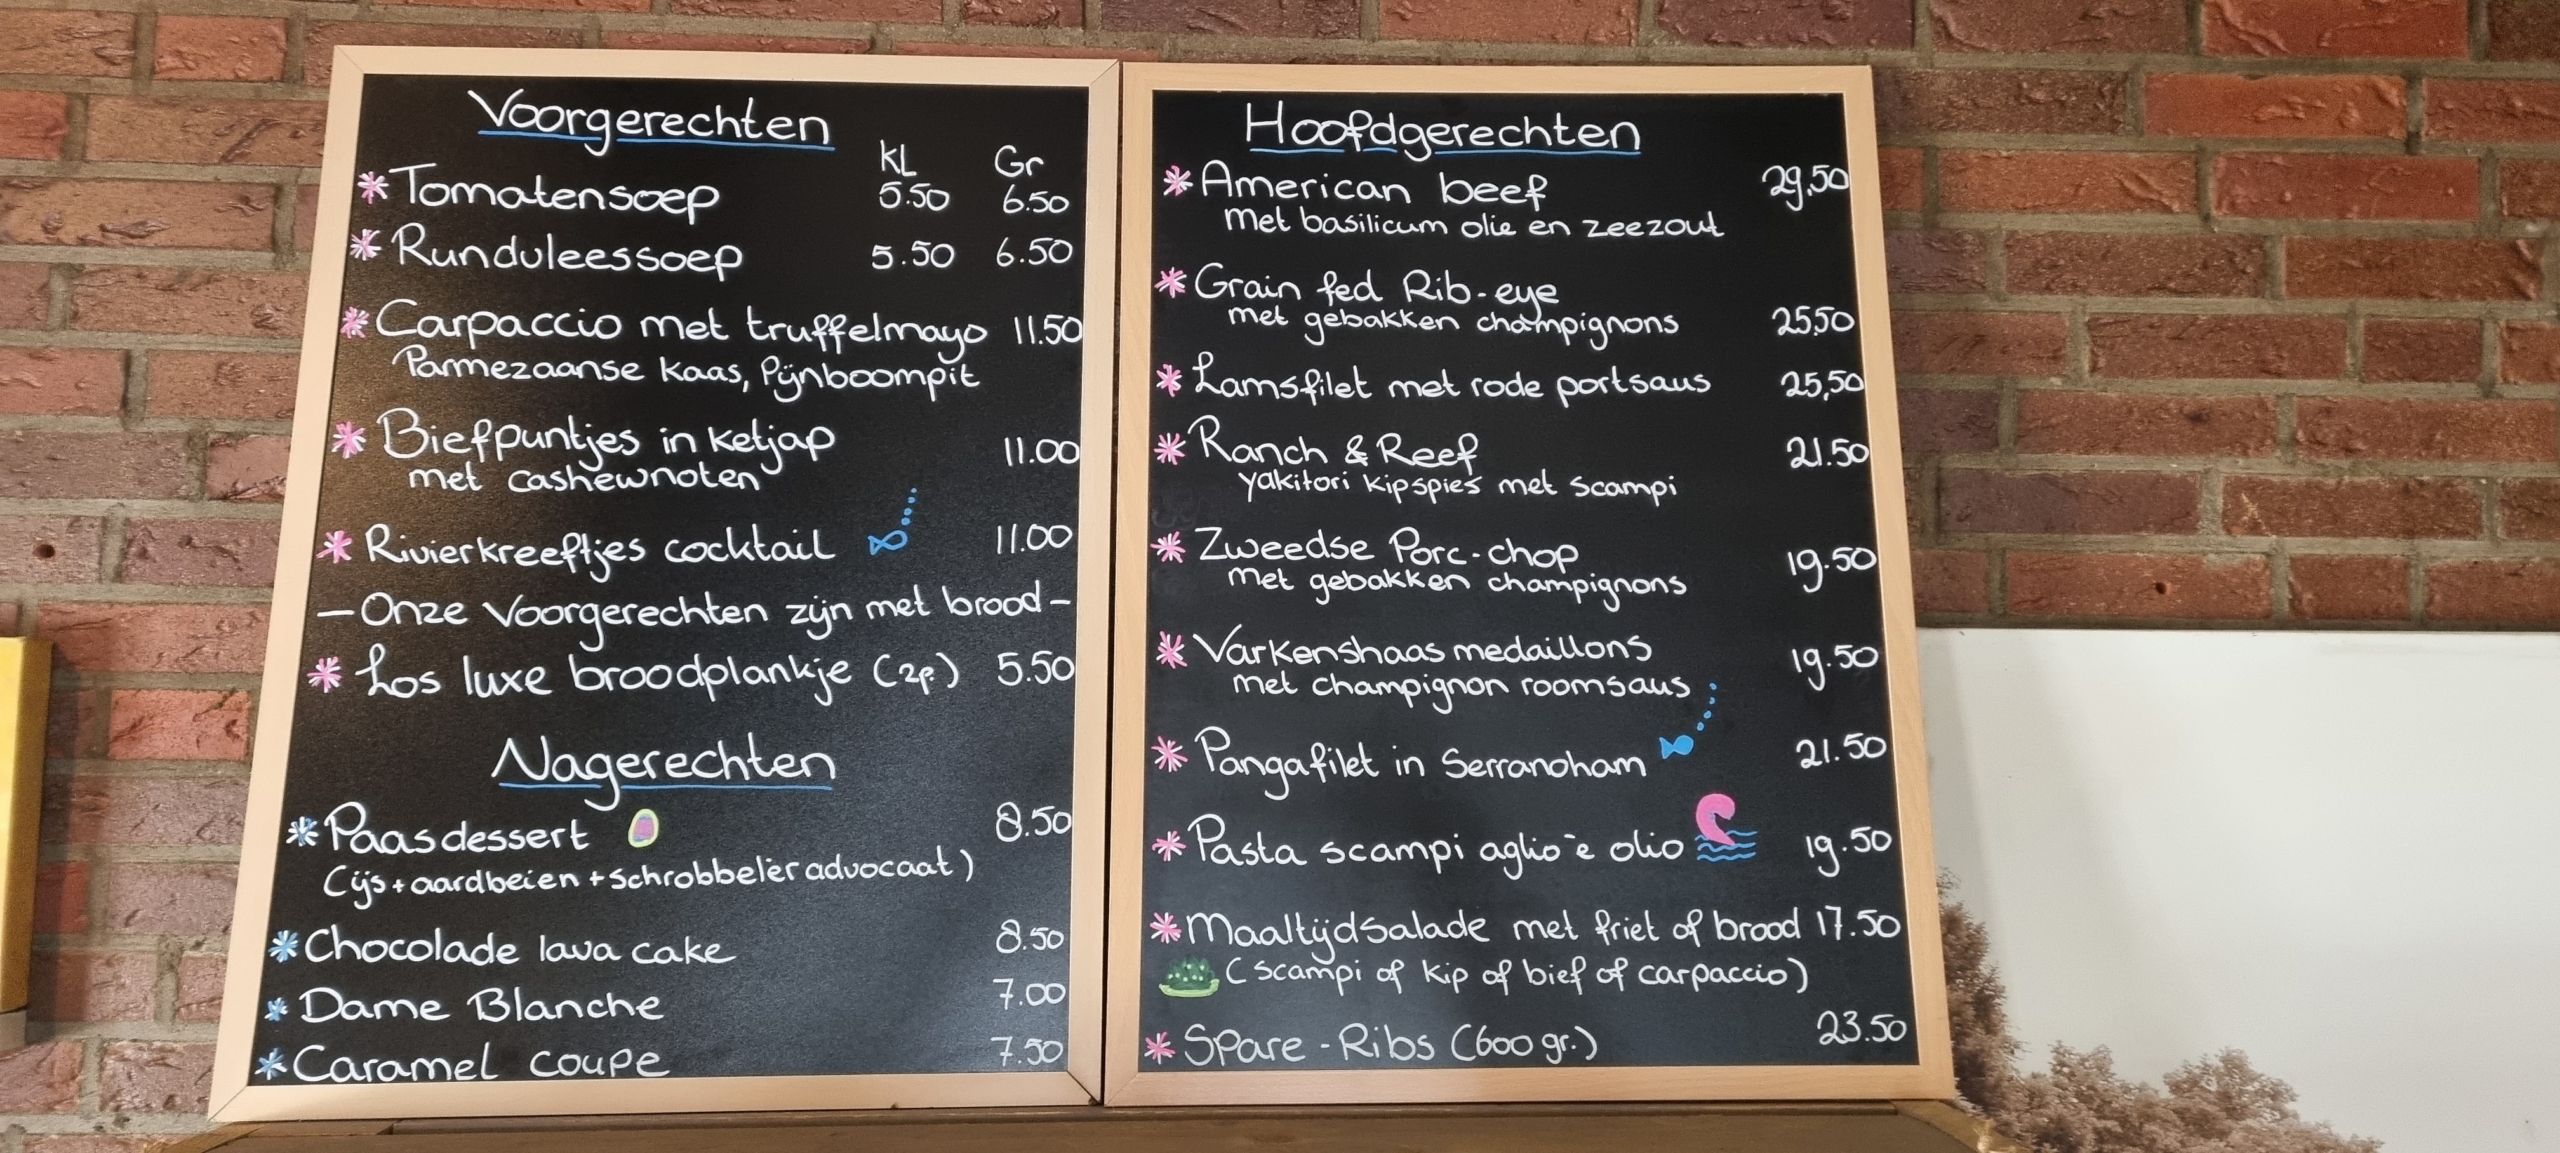 Voorgerechten
KL Gr
* Tomatensoep 5.50 6.50
* Rundvleessoep 5.50 6.50
* Carpaccio met truffelmayo 11.50
Parmezaanse kaas, Pijnboompit
* Biefpuntjes in ketjap 11.00
met cashewnoten
* Rivierkreeftjes cocktail 11.00
- Onze Voorgerechten zijn met brood -
* Los luxe broodplankje (2p.) 5.50
Nagerechten
* Paasdessert 8.50
(ijs + aardbeien + Schrobbelèr advocaat)
* Chocolade lava cake 8.50
* Dame Blanche 7.00
* Caramel coupe 7.50
Hoofdgerechten
* American beef 29,50
met basilicum olie en zeezout
* Grain fed Rib-eye
met gebakken champignons 25,50
* Lamsfilet met rode portsaus 25,50
* Ranch & Reef 21.50
yakitori kipspies met scampi
* Zweedse Porc-chop 19.50
met gebakken champignons
* Varkenshaas medaillons 19.50
met champignon roomsaus
* Pangafilet in Serranoham 21.50
* Pasta scampi aglio è olio 19.50
* Maaltijdsalade met friet of brood 17.50
(scampi of kip of bief of carpaccio)
* Spare-Ribs (600 gr.) 23.50